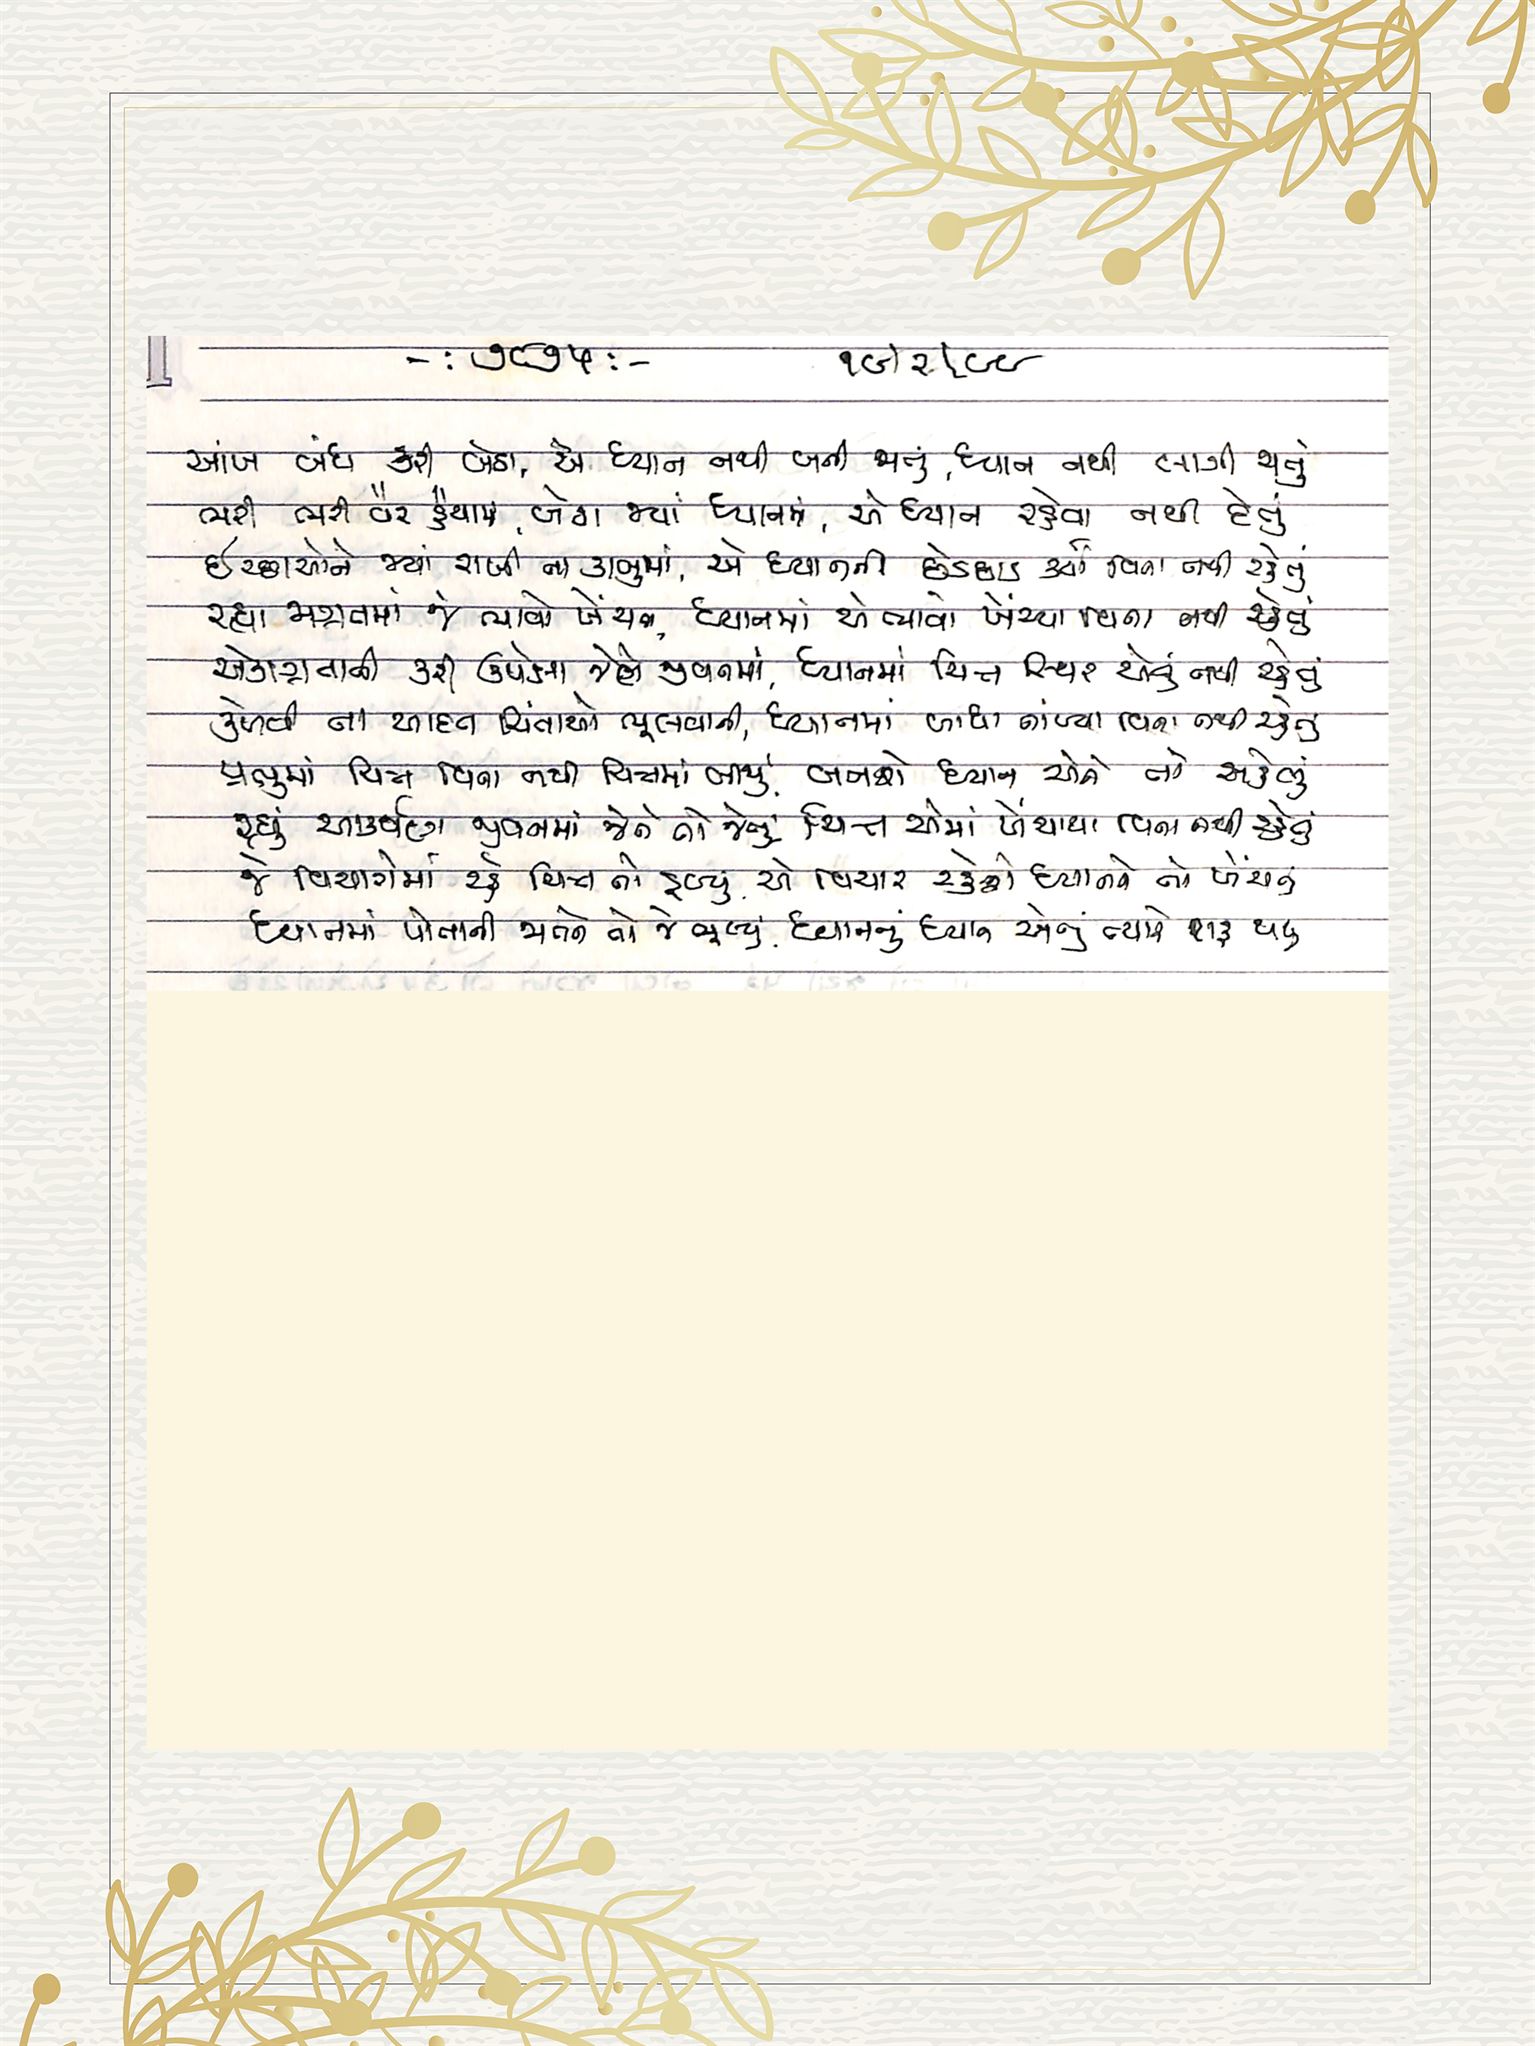 -: ૭૮૭૫ :- ૧૯/૨/૯૯
આંખ બંધ કરી બેઠા, એ ધ્યાન નથી બની જાતું, ધ્યાન નથી લાગી જતું
ભરી ભરી વૈર હૈયામાં, બેઠા જ્યાં ધ્યાનમાં, એ ધ્યાન રહેવા નથી દેતું
ઈચ્છાઓને જ્યાં રાખી ના કાબુમાં, એ ધ્યાનની છેડછાડ કર્યા વિના નથી રહેતું
રહ્યા જગતમાં જે ભાવો ખેંચતા, ધ્યાનમાં એ ભાવો ખેંચ્યા વિના નથી રહેતું
એકાગ્રતાની કરી ઉપેક્ષા જેણે જીવનમાં, ધ્યાનમાં ચિત્ત સ્થિર એનું નથી રહેતું
કેળવી ના આદત ચિંતાઓ ભૂલવાની, ધ્યાનમાં બાધા નાંખ્યા વિના નથી રહેતું
પ્રભુમાં ચિત્ત વિના નથી ચિત્તમાં બીજું, બનશે ધ્યાન એને તો સહેલું
રહ્યું આકર્ષણ જીવનમાં જેને તો જેનું, ચિત્ત એમાં ખેંચાયા વિના નથી રહેતું
જે વિચારોમાં રહે ચિત્ત તો ડૂબ્યું, એ વિચાર રહેશે ધ્યાનને તો ખેંચતું
ધ્યાનમાં પોતાની જાતને તો જે ભૂલ્યું, ધ્યાનનું ધ્યાન એનું ત્યારે શરૂ થયું